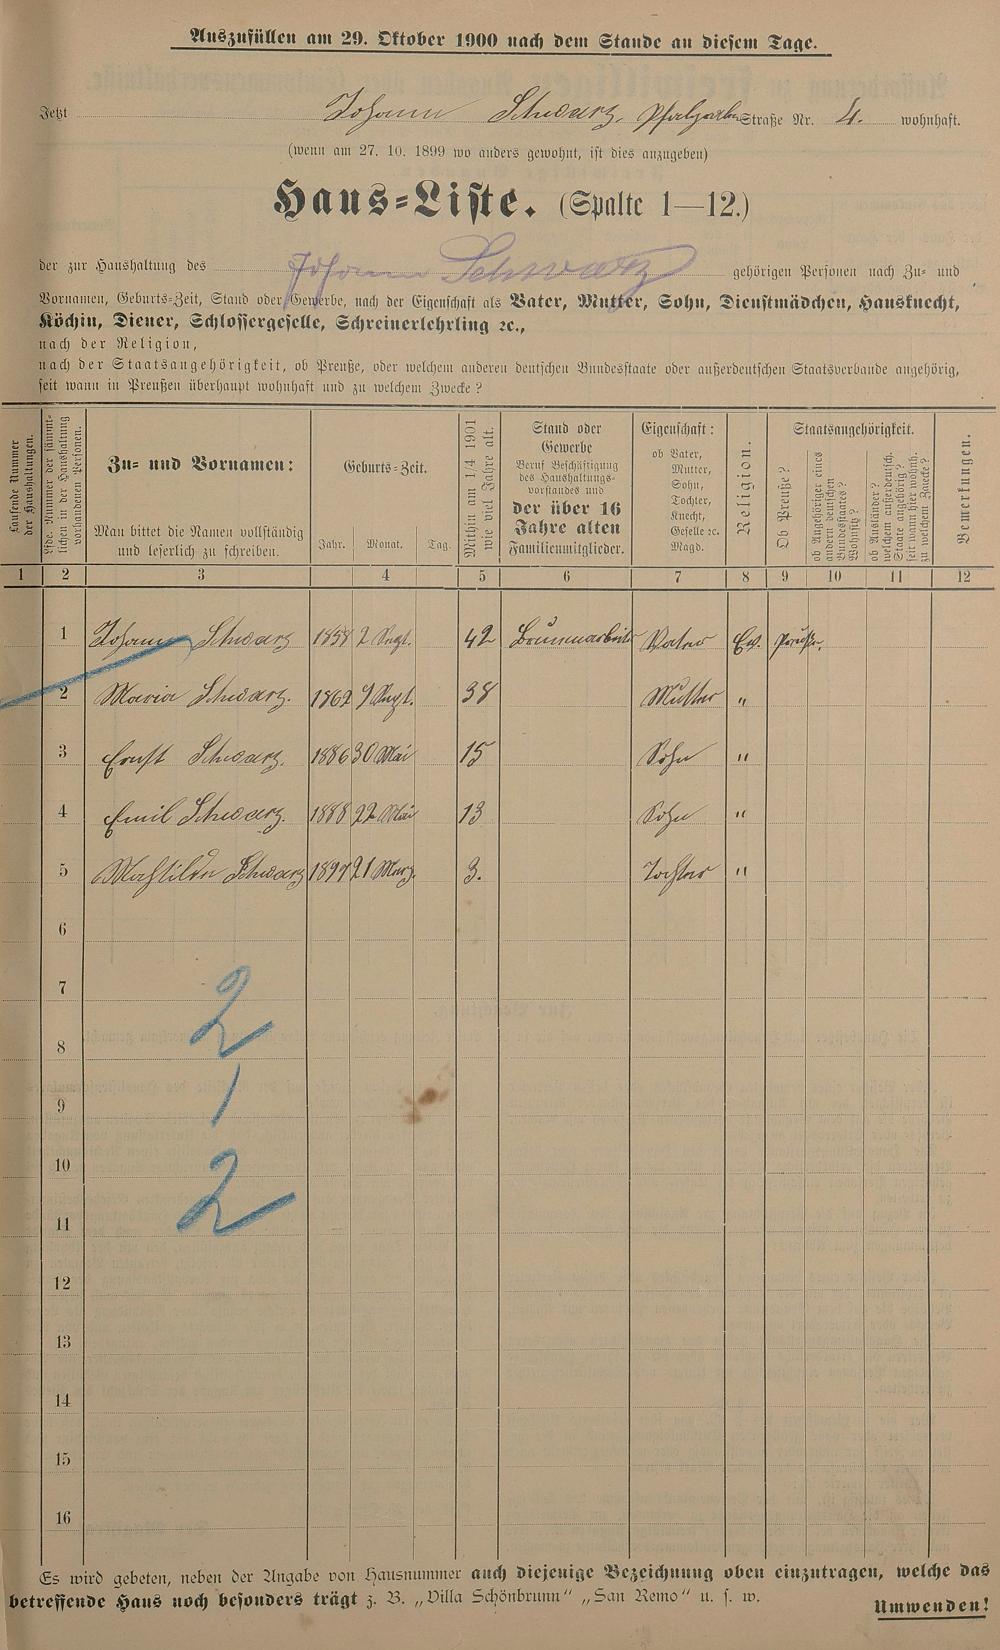 Auszufüllen am 29. Oktober 1900 nach dem Stande an diesem Tage.
Jetzt Johann Schwarz. Straße Nr. 4. wohnhaft.
(wenn am 27. 10. 1899 wo anders gewohnt, ist dies anzugeben)
Haus-Liste. (Spalte 1—12.)
der zur Haushaltung des Johann Schwarz gehörigen Personen nach Zu- und
Vornamen, Geburts-Zeit, Stand oder Gewerbe, nach der Eigenschaft als Vater, Mutter, Sohn, Dienstmädchen, Hausknecht,
Köchin, Diener, Schlossergeselle, Schreinerlehrling ꝛc.,
nach der Religion,
nach der Staatsangehörigkeit, ob Preuße, oder welchem anderen deutschen Bundesstaate oder außerdeutschen Staatsverbande angehörig,
seit wann in Preußen überhaupt wohnhaft und zu welchem Zwecke?
Laufende Nummer
der Haushaltungen.
Lfde. Nummer der sämmt-
lichen in der Haushaltung
vorhandenen Personen.
Zu- und Vornamen:
Man bittet die Namen vollständig
und leserlich zu schreiben.
Geburts-Zeit.
Jahr. Monat. Tag.
Mithin am 1/4 1901
wie viel Jahre alt.
Stand oder
Gewerbe
Beruf Beschäftigung
des Haushaltungs-
vorstandes und
der über 16
Jahre alten
Familienmitglieder.
Eigenschaft:
ob Vater,
Mutter,
Sohn,
Tochter,
Knecht,
Geselle ꝛc.
Magd.
Religion.
Staatsangehörigkeit.
Ob Preuße?
ob Angehöriger eines
andern deutschen
Bundesstaates?
Wohnsitz?
ob Ausländer?
welchem außerdeutsch.
Staate angehörig?
seit wann hier wohnh.
zu welchem Zwecke?
Bemerkungen.
1 2 3 4 5 6 7 8 9 10 11 12
1 Johann Schwarz 1858 2 Sept. 42 Brunnarbeiter Vater Ev. Preuße.
2 Maria Schwarz. 1862 9 Sept. 38 Mutter "
3 Ernst Schwarz. 1886 30 Mai 15 Sohn "
4 Emil Schwarz. 1888 22 Mai 13 Sohn "
5 Mathilde Schwarz 1897 21 Merz. 3. Tochter "
6
7
2
8
9
1
10
2
11
12
13
14
15
16
Es wird gebeten, neben der Angabe von Hausnummer auch diejenige Bezeichnung oben einzutragen, welche das
betreffende Haus noch besonders trägt z. B. „Villa Schönbrunn" „San Remo" u. s. w.
Umwenden!